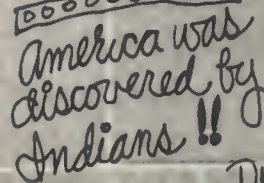 America was
discovered by
Indians !!